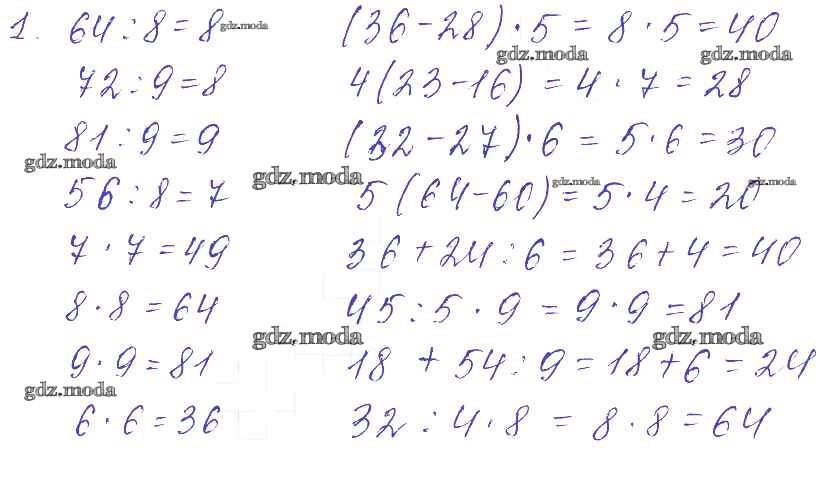 1. 64 : 8 = 8 gdz.moda (36 - 28) · 5 = 8 · 5 = 40
gdz.moda gdz.moda
72 : 9 = 8 4 (23 - 16) = 4 · 7 = 28
81 : 9 = 9 (32 - 27) · 6 = 5 · 6 = 30
gdz.moda gdz.moda
56 : 8 = 7 5 (64 - 60) gdz.moda = 5 · 4 = 20 gdz.moda
7 · 7 = 49 36 + 24 : 6 = 36 + 4 = 40
8 · 8 = 64 45 : 5 · 9 = 9 · 9 = 81
gdz.moda gdz.moda
9 · 9 = 81 18 + 54 : 9 = 18 + 6 = 24
gdz.moda
6 · 6 = 36 32 : 4 · 8 = 8 · 8 = 64